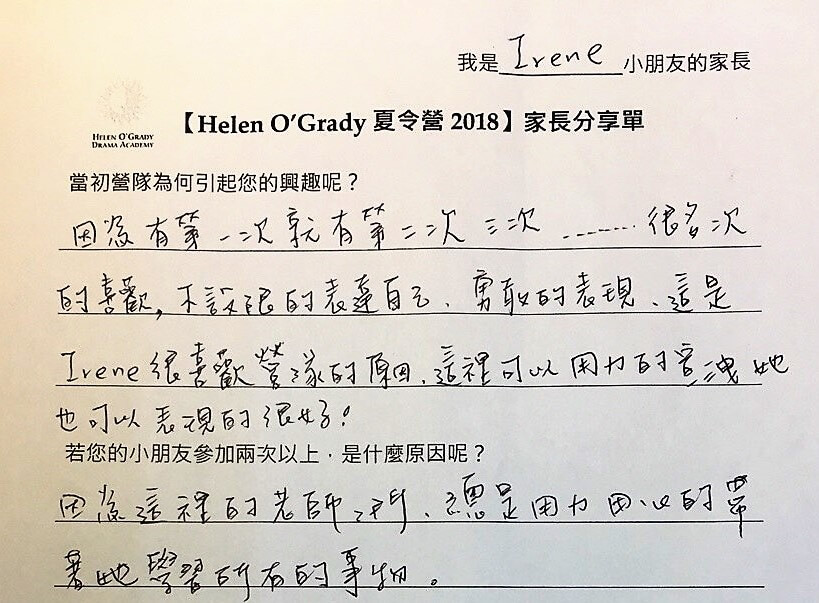 我是 Irene 小朋友的家長
HELEN O'GRADY
DRAMA ACADEMY
【Helen O'Grady 夏令營 2018】家長分享單
當初營隊為何引起您的興趣呢？
因為有第一次就有第二次 三次 ……… 很多次
的喜歡，不設限的表達自己、勇敢的表現、這是
Irene 很喜歡營隊的原因、這裡可以用力的宣洩她
也可以表現的很好！
若您的小朋友參加兩次以上，是什麼原因呢？
因為這裡的老師們、總是用力用心的帶
著她學習所有的事物。